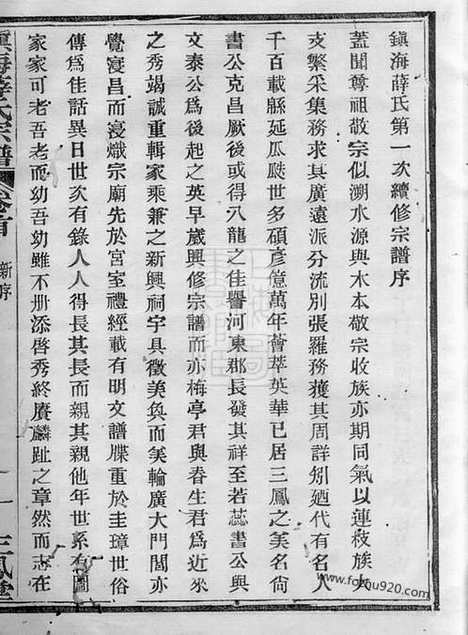 鎮海薛氏第一次續修宗譜序
蓋聞尊祖敬宗似溯水源與木本敬宗收族亦期同氣以蓮枝族大
支繁采集務求其廣遠派分流別張羅務獲其周詳矧廼代有名人
千百載縣延瓜瓞世多碩彥億萬年薈萃英華已居三鳳之美名尙
書公克昌厥後或得八龍之佳譽河東郡長發其祥至若蕊書公與
文泰公爲後起之英早歲興修宗譜而亦梅亭君與春生君爲近來
之秀竭誠重輯家乘兼之新興祠宇具徵美奐而美輪廣大門閭亦
覺寖昌而寖熾宗廟先於宮室禮經載有明文譜牒重於圭璋世俗
傳爲佳話異日世次有錄人人得長其長而親其親他年世系有圖
家家可老吾老而幼吾幼雖不册添啓秀終賡麟趾之章然而志在
鎮海薛氏宗譜
卷首
新序
一
三鳳堂
www.foxqu920.com